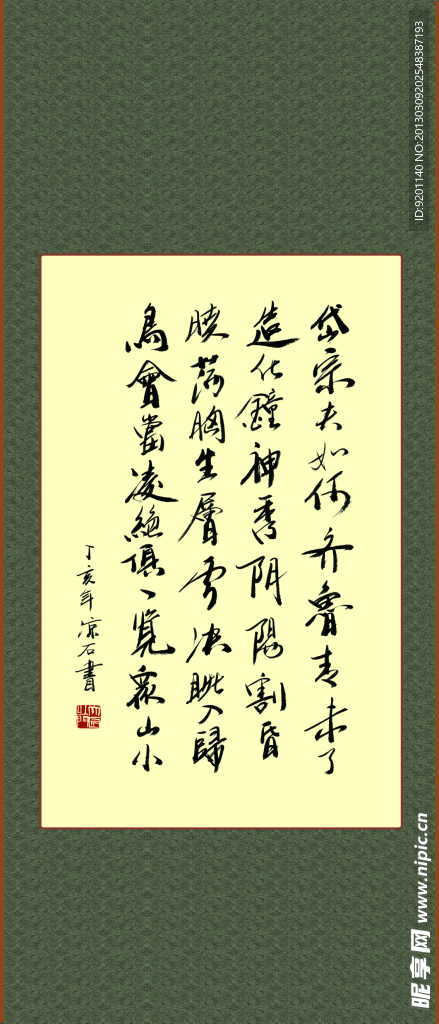 岱宗夫如何齐魯青未了
造化鐘神秀阴陽割昏
曉荡胸生層雲决眦入歸
鳥會當凌絶頂一览衆山小
丁亥年凉石書
ID:9201140 NO:20130309202548387193
昵享网 www.nipic.cn